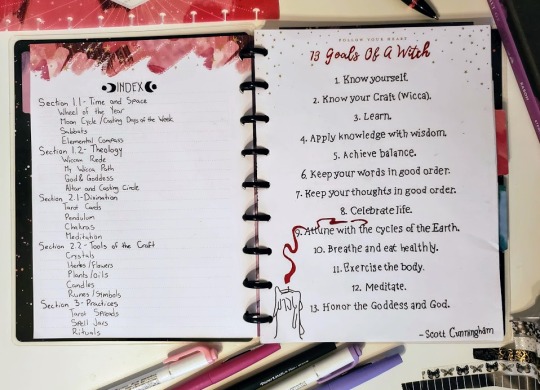 INDEX
Section 1.1- Time and Space
Wheel of the Year
Moon Cycle/Casting Days of the Week
Sabbats
Elemental Compass
Section 1.2- Theology
Wiccan Rede
My Wicca Path
God & Goddess
Altar and Casting Circle
Section 2.1- Divination
Tarot Cards
Pendulum
Chakras
Meditation
Section 2.2- Tools of the Craft
Crystals
Herbs/Flowers
Plants/Oils
Candles
Runes/Symbols
Section 3- Practices
Tarot Spreads
Spell Jars
Rituals
FOLLOW YOUR HEART
13 Goals Of A Witch
1. Know yourself.
2. Know your Craft (Wicca).
3. Learn.
4. Apply knowledge with wisdom.
5. Achieve balance.
6. Keep your words in good order.
7. Keep your thoughts in good order.
8. Celebrate life.
9. Attune with the cycles of the Earth.
10. Breathe and eat healthly.
11. Exercise the body.
12. Meditate.
13. Honor the Goddess and God.
- Scott Cunningham